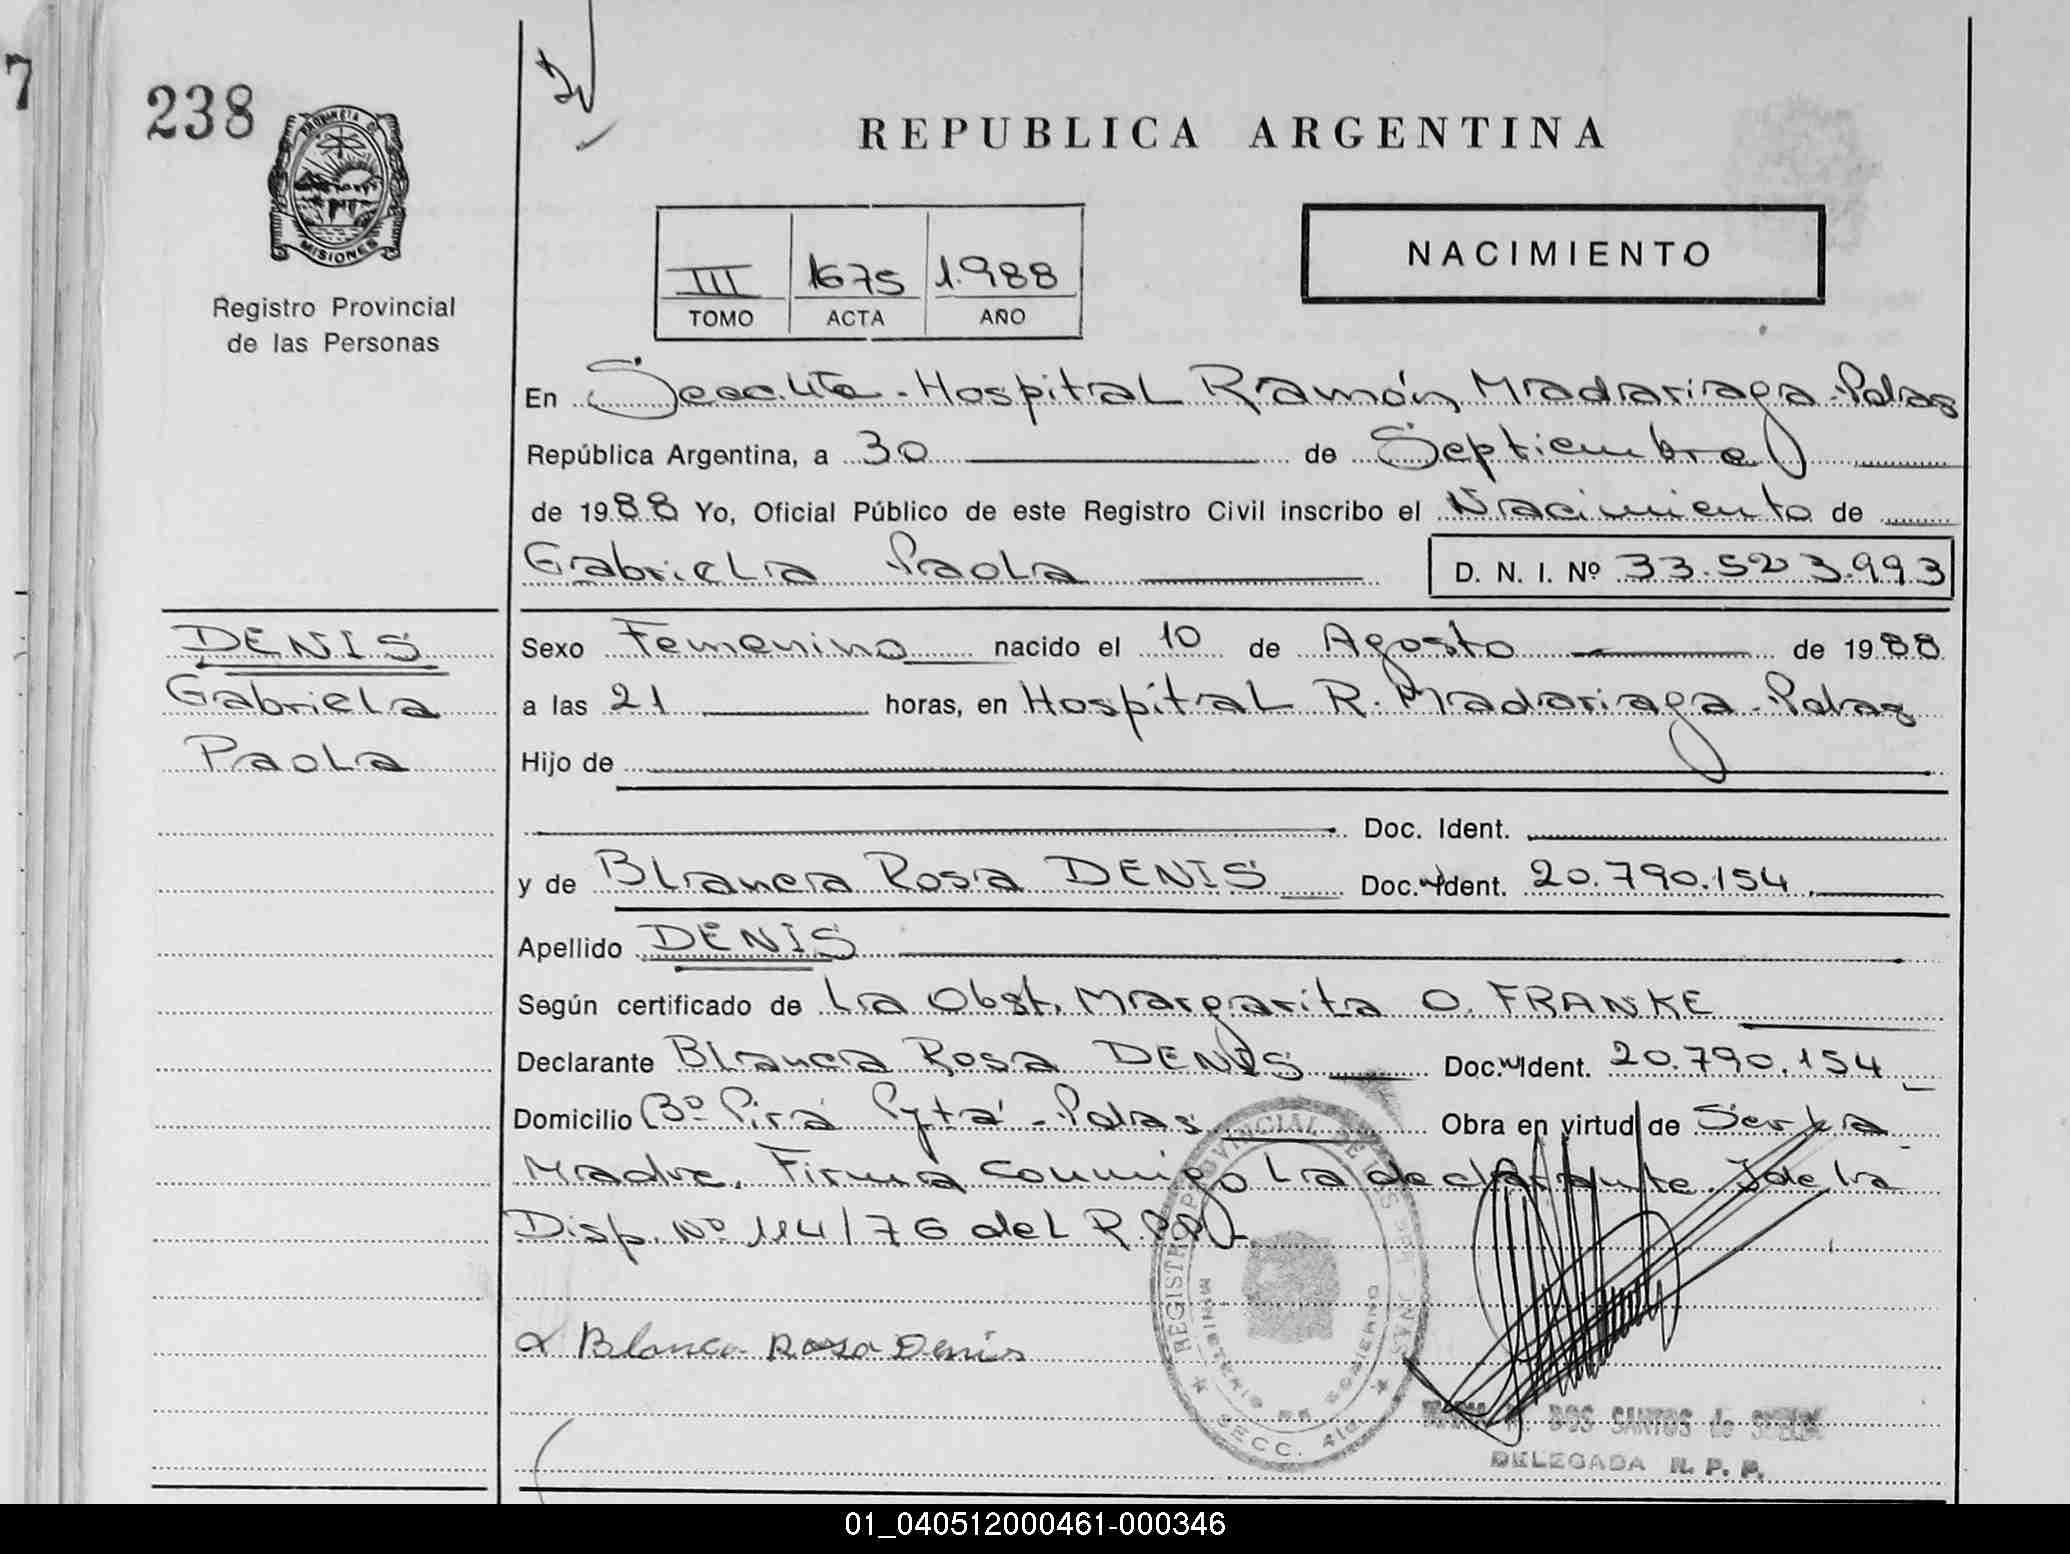 7
238
PROVINCIA DE
MISIONES
Registro Provincial
de las Personas
REPUBLICA ARGENTINA
III 1675 1.988
TOMO ACTA AÑO
NACIMIENTO
En Secc. 4ta - Hospital Ramón Madariaga - Pdas
República Argentina, a 30 de Septiembre
de 1988 Yo, Oficial Público de este Registro Civil inscribo el Nacimiento de
Gabriela Paola D. N. I. Nº 33.523.993
DENIS
Gabriela
Paola
Sexo Femenino nacido el 10 de Agosto de 1988
a las 21 horas, en Hospital R. Madariaga - Pdas
Hijo de
Doc. Ident.
y de Blanca Rosa DENIS Doc. Ident. 20.790.154
Apellido DENIS
Según certificado de La Obst. Margarita O. FRANKE
Declarante Blanca Rosa DENIS Doc. Ident. 20.790.154
Domicilio Bº Pirá Pytá - Pdas Obra en virtud de Ser la
Madre. Firma conmigo la declarante. I de la
Disp. Nº 114/76 del R.P.P.
Blanca Rosa Denis
REGISTRO PROVINCIAL DE LAS PERSONAS
MINISTERIO DE GOBIERNO
SECC. 4ta
DOS SANTOS de
DELEGADA R. P. P.
01_040512000461-000346